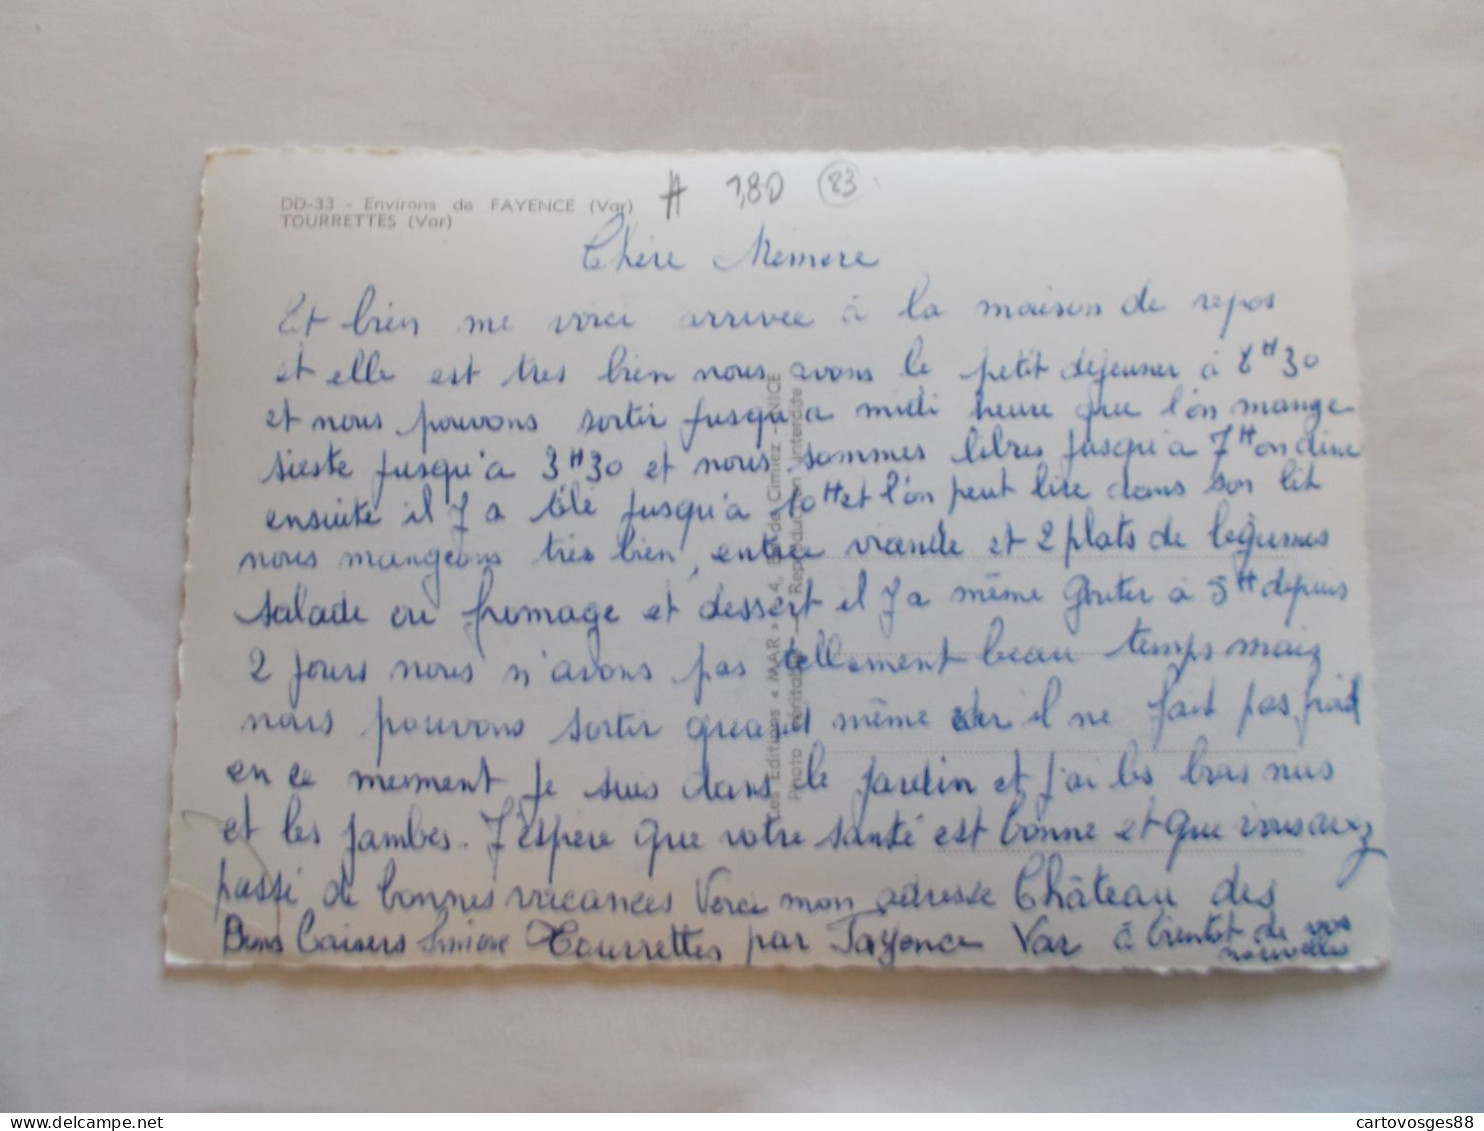 DD-33 - Environs de FAYENCE (Var)
TOURRETTES (Var)
1,80 83
Chère Mémère
Et bien me voici arrivée à la maison de repos
et elle est très bien nous avons le petit dejeuner à 8H30
et nous pouvons sortir jusqu'a midi heure que l'on mange
sieste jusqu'a 3H30 et nous sommes libres jusqu'a 7H on dine
ensuite il y a télé jusqu'a 10H et l'on peut lire dans son lit
nous mangeons très bien, entrée viande et 2 plats de légumes
salade ou fromage et dessert il y a même goûter à 5H depuis
2 jours nous n'avons pas tellement beau temps mais
nous pouvons sortir quand même car il ne fait pas froid
en ce moment je suis dans le jardin et j'ai les bras nus
et les jambes. J'espère que votre santé est bonne et que vous avez
passé de bonnes vacances Voici mon adresse Château des
Bons baisers Simone Tourrettes par Fayence Var à bientot de vos
nouvelles
Les Editions « MAR » 4, Bd de Cimiez - NICE
Photo véritable — Reproduction interdite
cartovosges88